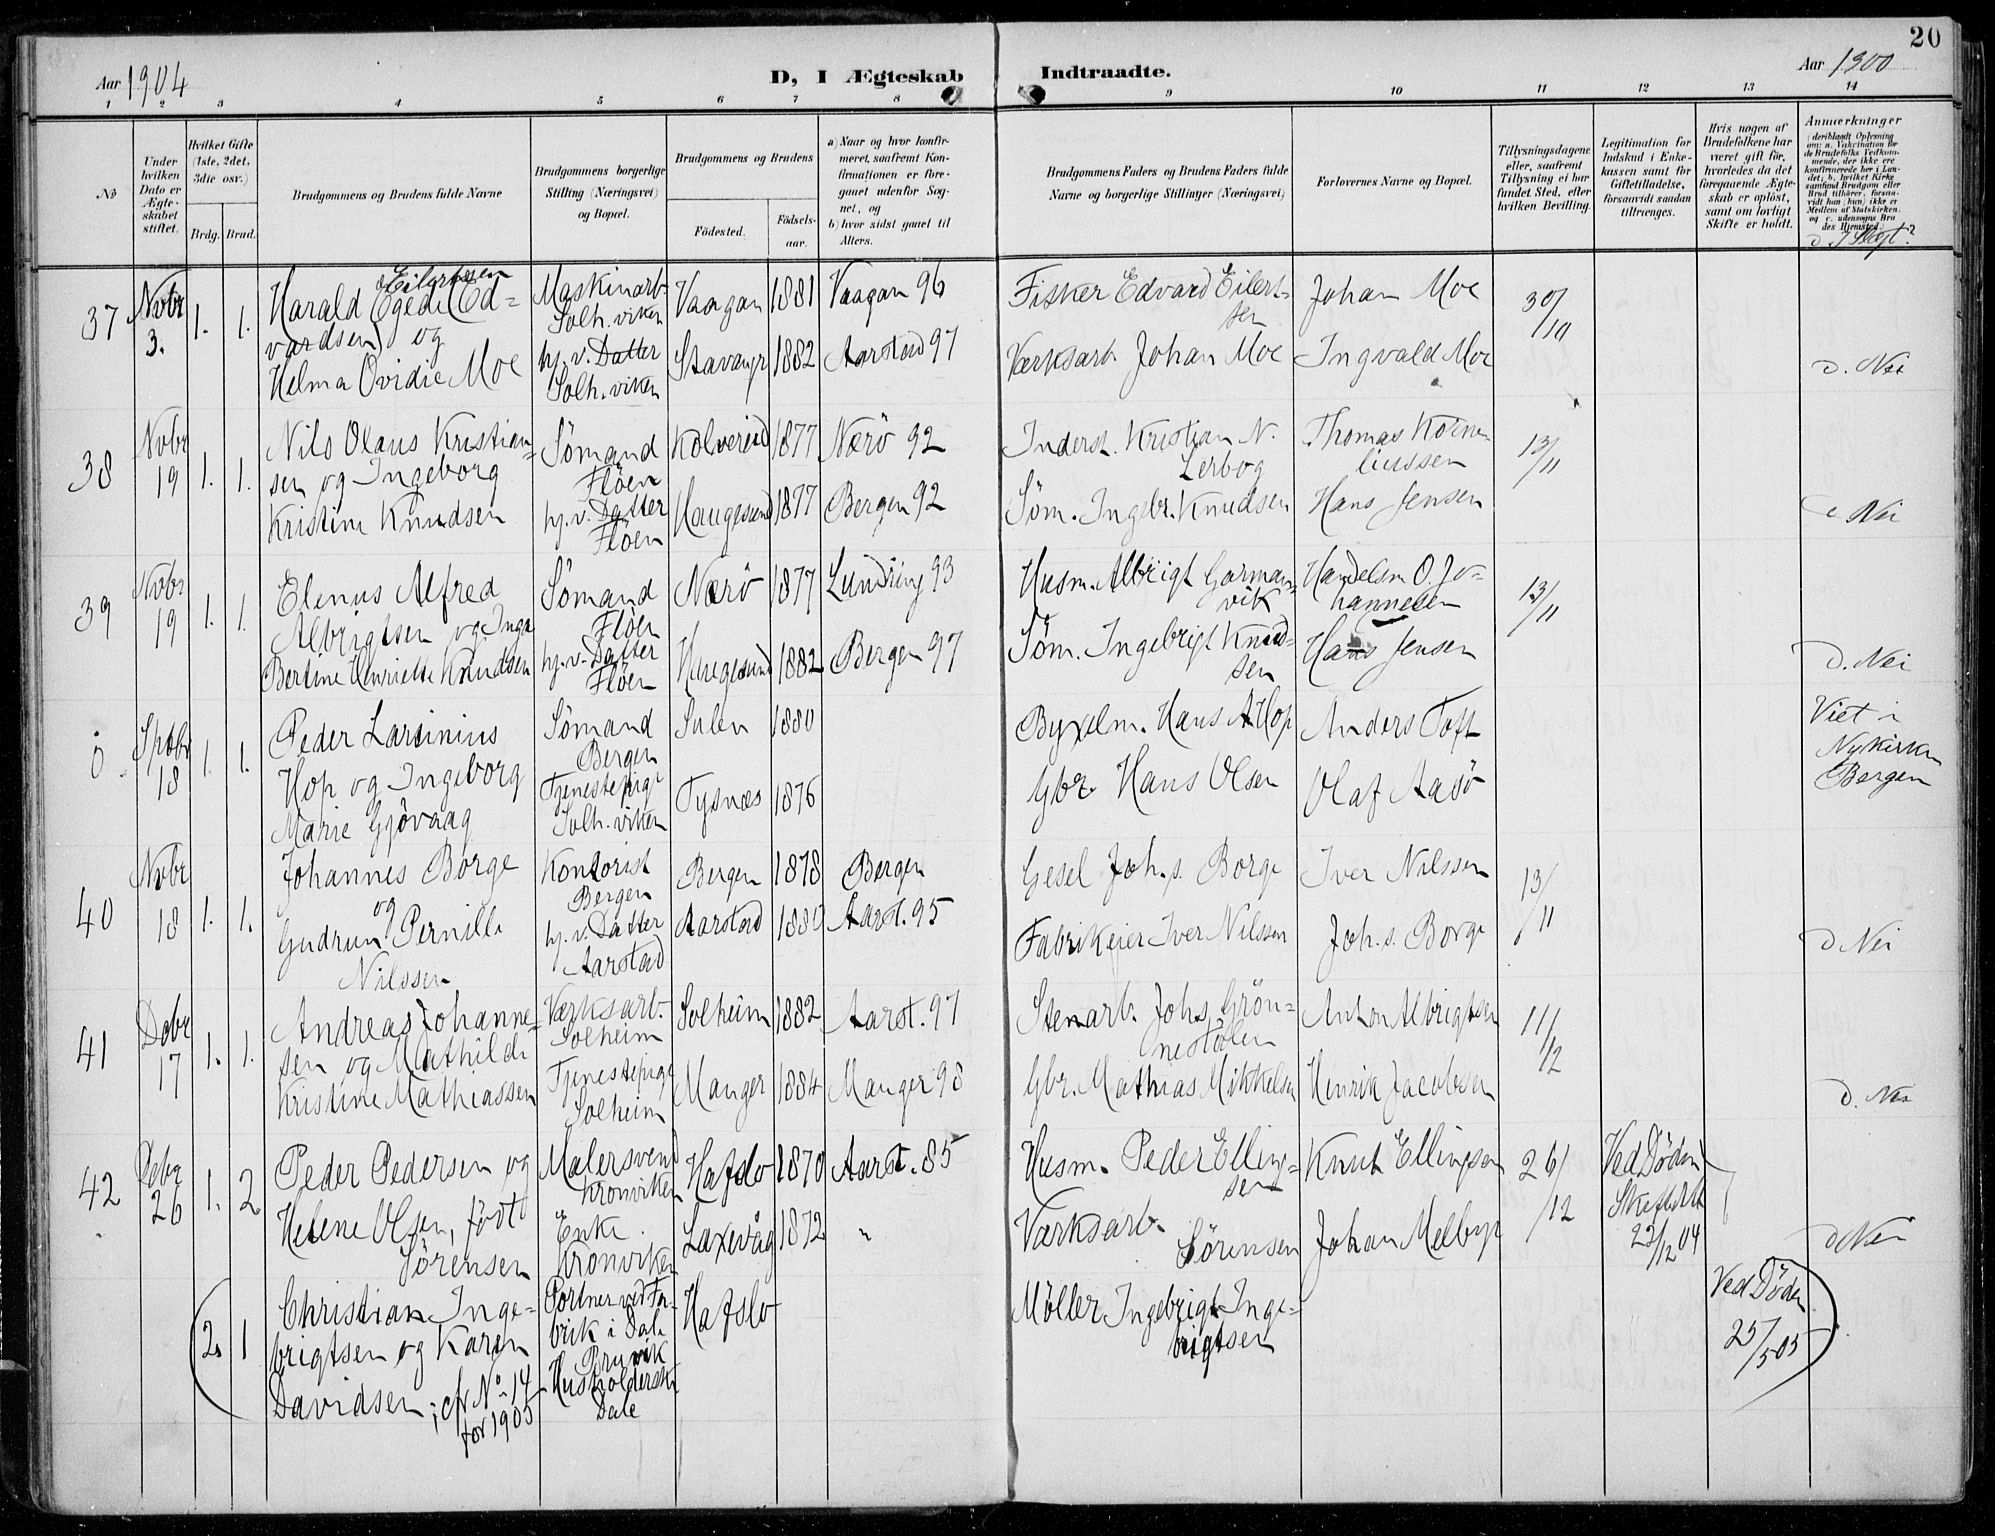 20
Aar 1904
D, I Ægteskab Indtraadte.
Aar 1900
1 2 3 4 5 6 7 8 9 10 11 12 13 14
№
Under hvilken Dato er Ægteskabet stiftet.
Hvilket Gifte (1ste, 2det, 3die osv.)
Brdg. Brud.
Brudgommens og Brudens fulde Navne
Brudgommens borgerlige Stilling (Næringsvei) og Bopæl.
Brudgommens og Brudens
Födested.
Födselsaar.
a) Naar og hvor konfirmeret, saafremt Konfirmationen er foregaaet udenfor Sognet, og
b) hvor sidst gaaet til Alters.
Brudgommens Faders og Brudens Faders fulde Navne og borgerlige Stillinger (Næringsvei)
Forlovernes Navne og Bopæl.
Tillysningsdagene eller, saafremt Tillysning ei har fundet Sted, efter hvilken Bevilling.
Legitimation for Indskud i Enkekassen samt for Giftetilladelse, forsaavidt saadan tiltrænges.
Hvis nogen af Brudefolkene har været gift för, hvorledes da det foregaaende Ægteskab er oplöst, samt om lovligt Skifte er holdt.
Anmærkninger
(deriblandt Oplysning om: a. Vakcination for de Brudefolks Vedkommende, der ikke ere konfirmerede her i Landet, b. hvilket Kirkesamfund Brudgom eller Brud tilhörer, forsaavidt han (hun) ikke er Medlem af Statskirken. og c. udensogns Brudes Hjemsted.
d I Slægt?
37 Nvbr 3. 1. 1. Harald Egedi Eilertsen (Edvardsen) og
Helma Ovidie Moe
Maskinarb. Solh.viken Vaagan 1881 Vaagan 96 Fisker Edvard Eilertsen Johan Moe 30/10
hj.v. Datter Solh.viken Stavangr 1882 Aarstad 97 Værksarb. Johan Moe Ingvald Moe d. Nei
38 Nvbr 19 1. 1. Nils Olaus Kristiansen og Ingeborg
Kristine Knudsen
Sömand Flöen Kolvereid 1877 Nærö 92 Inderst. Kristian N. Lerbog Thomas Kornelinssen 13/11
hj.v. Datter Flöen Haugesund 1877 Bergen 92 Söm. Ingebr. Knudsen Hans Jensen Nei
39 Nvbr 19 1. 1. Elenus Alfred
Albrigtsen og Inga
Bertine Henriette Knudsen
Sömand Flöen Nærö 1877 Lundring 93 Husm. Albrigt Garmanvik Handelsm O. Johannesen 13/11
hj.v. Datter Flöen Haugesund 1882 Bergen 97 Söm. Ingebrigt Knudsen Hans Jensen d. Nei
0. Sptbr 18 1. 1. Peder Larsinius
Hop og Ingeborg
Marie Gjövaag
Sömand Bergen Sulen 1880 Byxelm. Hans A Hop Anders Toft Viet i Nykirken Bergen
Tjenestepige Solh.viken Tysnæs 1876 Gbr. Hans Olsen Olaf Aasö
40 Nvbr 18 1. 1. Johannes Borge
og
Gudrun Pernille
Nilssen
Kontorist Bergen Bergen 1878 Bergen Gesel Joh.s. Borge Iver Nilssen 13/11
hj.v. Datter Aarstad Aarstad 1880 Aarst. 95 Fabrikeier Iver Nilssen Joh.s. Borge d Nei
41 Debr 17 1. 1. Andreas Johannesen og Mathilde
Kristine Mathiassen
Værksarb. Solheim Solheim 1882 Aarst. 97 Stenarb. Johs Grönnestölen Anton Albrigtsen 11/12
Tjenestepige Solheim Manger 1884 Manger 98 Gbr. Mathias Mikkelsen Henrik Jacobsen d. Nei
42 Debr 26 1. 2 Peder Pedersen og
Helene Olsen, född
Sörensen
Malersvend Kronviken Hafslo 1870 Aarst. 85 Husm. Peder Ellingsen Knut Ellingsen 26/12 Ved Döden
Enke. Kronviken Laxevåg 1872 " Værksarb. Sörensen Johan Melbye 23/12 04 d Nei
2. 1 Christian Ingebrigtsen og Karen
Davidsen; cfr No 14
for 1905
Portner ved Fabrik i Dale Bruvik Hafslo Möller Ingebrigt Ingebrigtsen Ved Döden 25/5 05
Dale